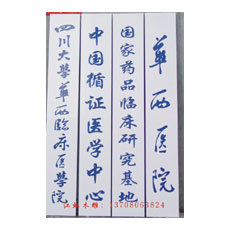 四川大學華西临床医學院
中国循证医学中心
国家药品临床研究基地
華西医院
13708063824